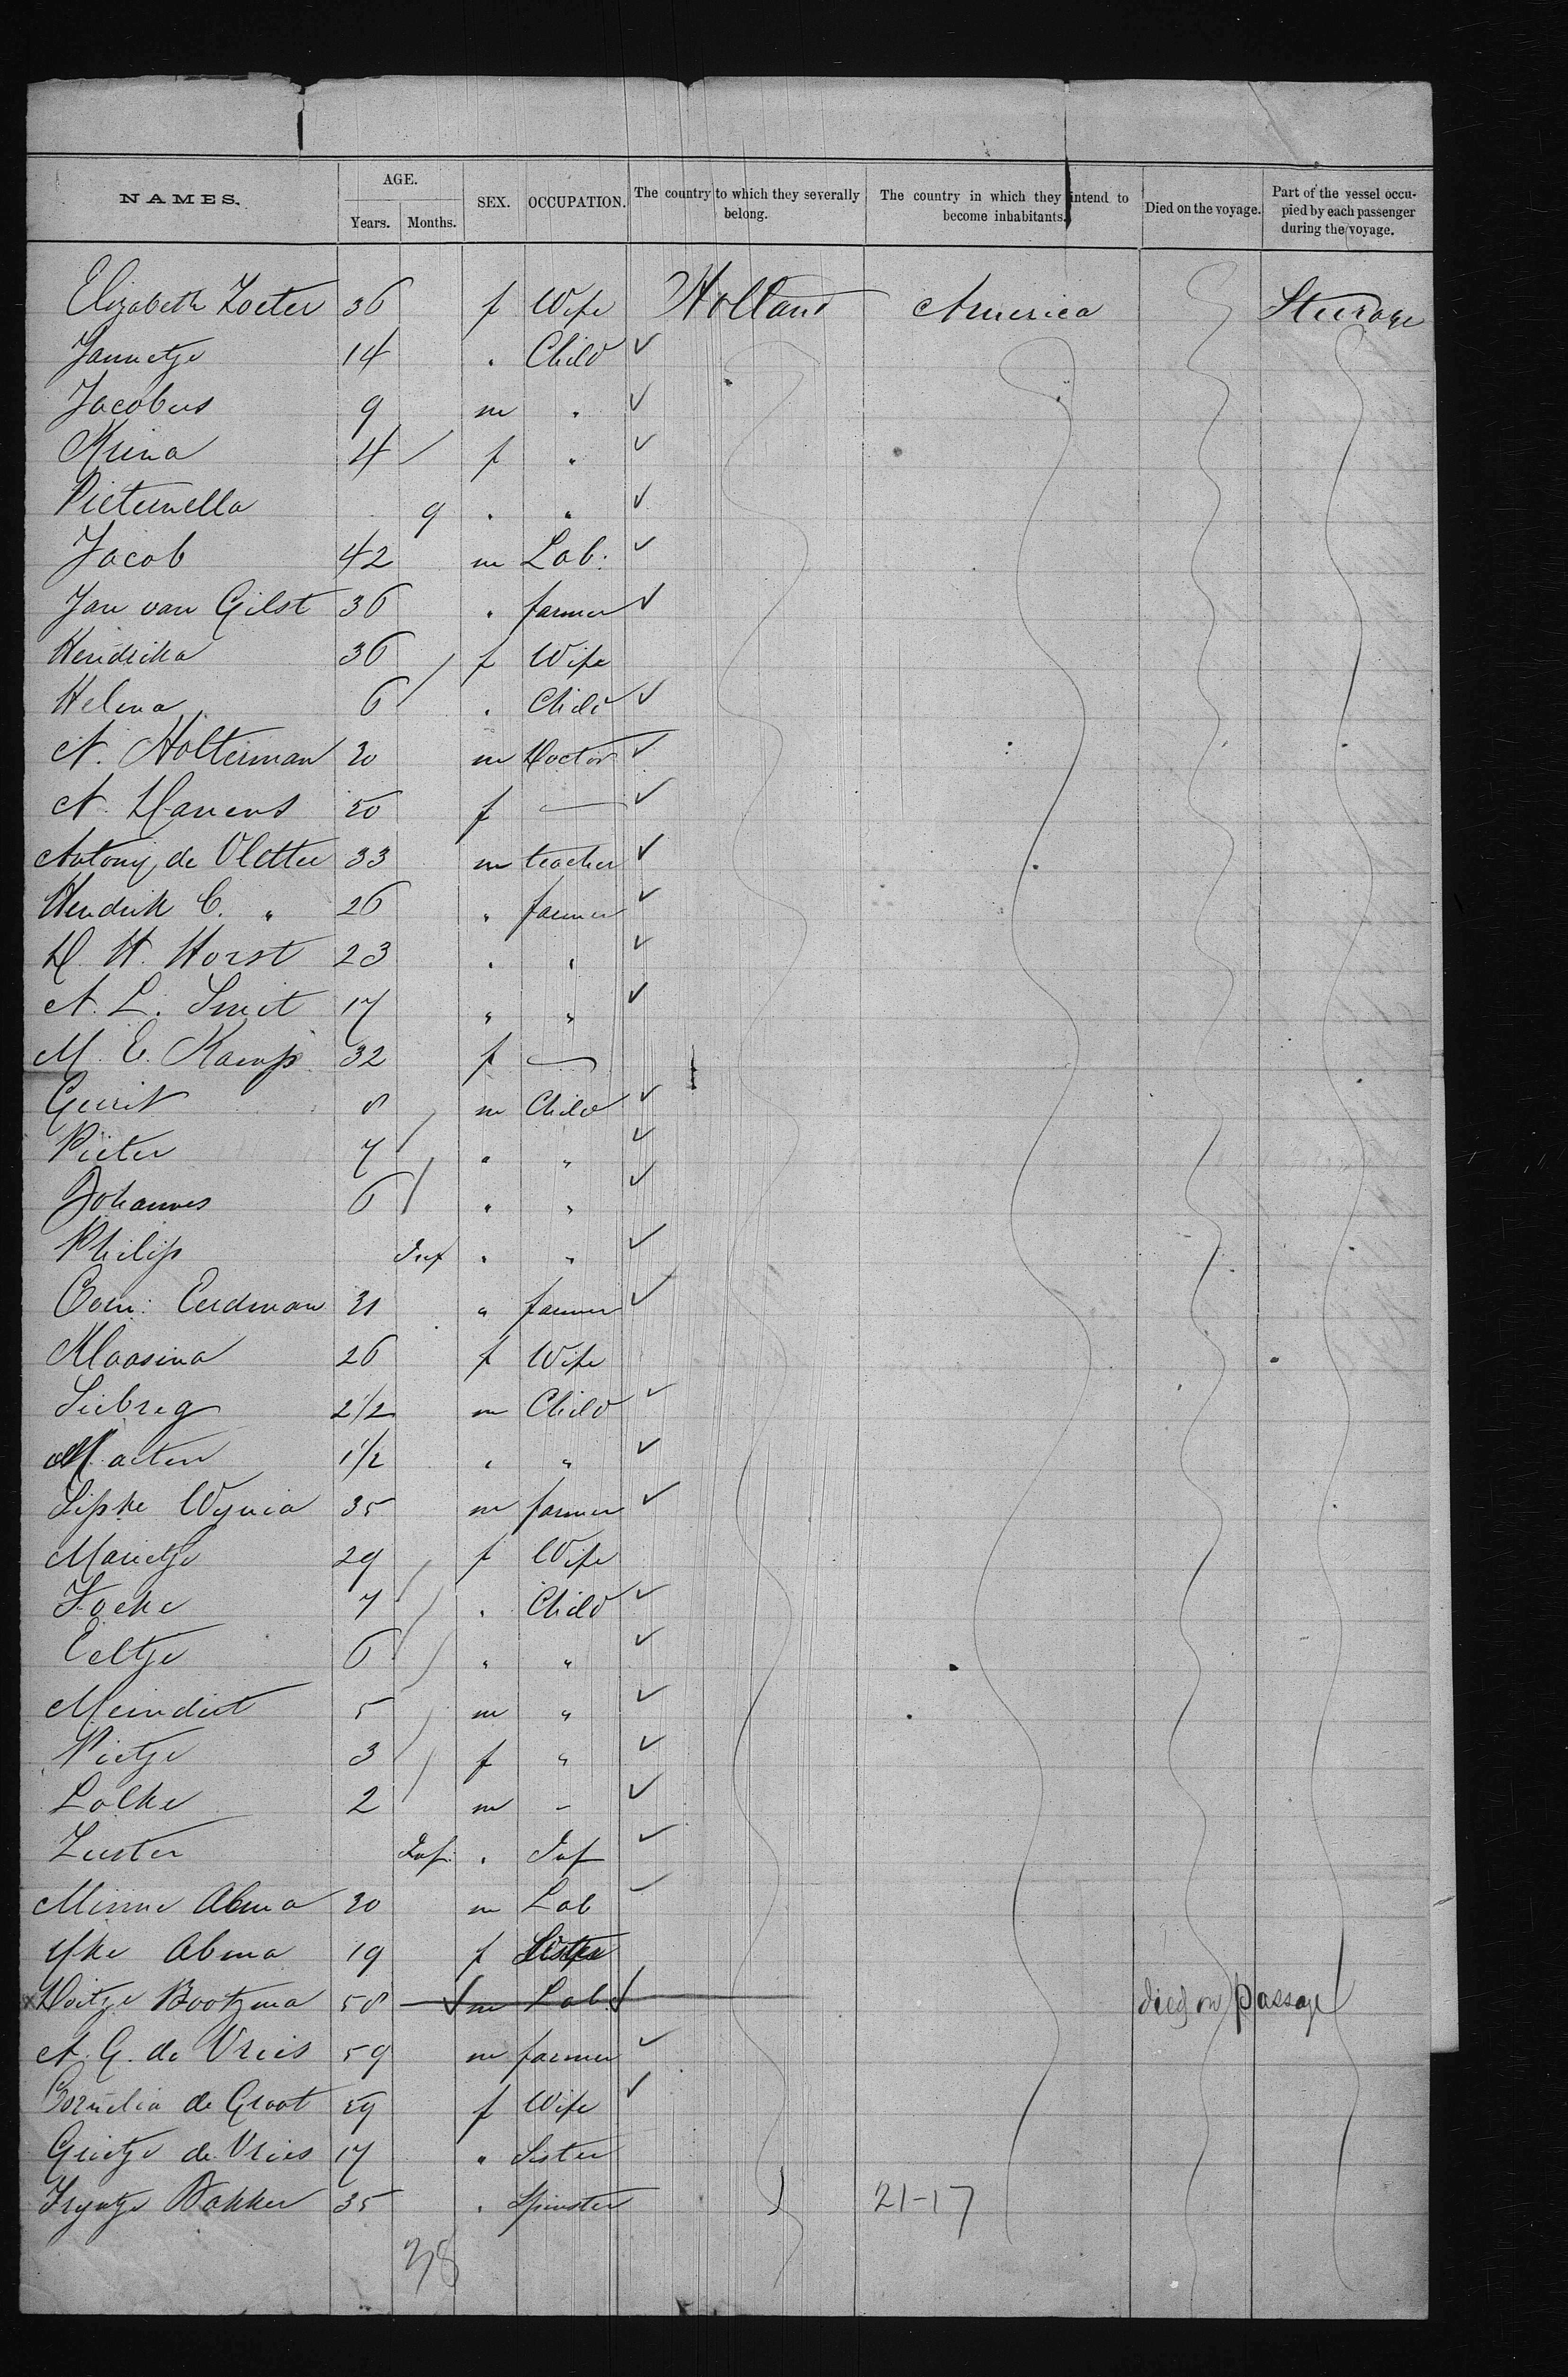 NAMES. AGE. SEX. OCCUPATION. The country to which they severally belong. The country in which they intend to become inhabitants. Died on the voyage. Part of the vessel occupied by each passenger during the voyage.
Years. Months.
Elizabeth Zoeter 36 f Wife Holland America Steerage
Jannetje 14 " Child ✓
Jacobus 9 m " ✓
Krina 4 f " ✓
Pieternella 9 " " ✓
Jacob 42 m Lab. ✓
Jan van Gilst 36 " farmer ✓
Hendrika 36 f Wife
Helena 6 " Child ✓
A. Holterman 30 m Doctor ✓
A. 50 f — ✓
Antony de Vletter 33 m teacher ✓
Hendrik C. " 26 " farmer ✓
D. H. Horst 23 " " ✓
A. L. Smit 17 " " ✓
M. E. Kamp 32 f —
Gerrit 8 m Child ✓
Pieter 7 " " ✓
Johannes 6 " " ✓
Philip Inf " " ✓
Coen: Eerdman 31 " farmer ✓
Klaasina 26 f Wife
Siebreg 2 1/2 m Child ✓
Marten 1 1/2 " " ✓
Sipke Wynia 35 m farmer ✓
Marietje 29 f Wife
Fokke 7 " Child ✓
Eeltje 6 " " ✓
Meindert 5 m " ✓
Pietje 3 f " ✓
Lolke 2 m " ✓
Inf. " Inf ✓
Minne Abma 30 m Lab ✓
Yke Abma 19 f Sister
x Doitze Bootzma 58 m Lab. died on passage
A. G. de Vries 59 m farmer ✓
Cornelia de Groot 59 f Wife ✓
Grietje de Vries 17 " Sister
Tryntje Bakker 35 " Spinster 21-17
38